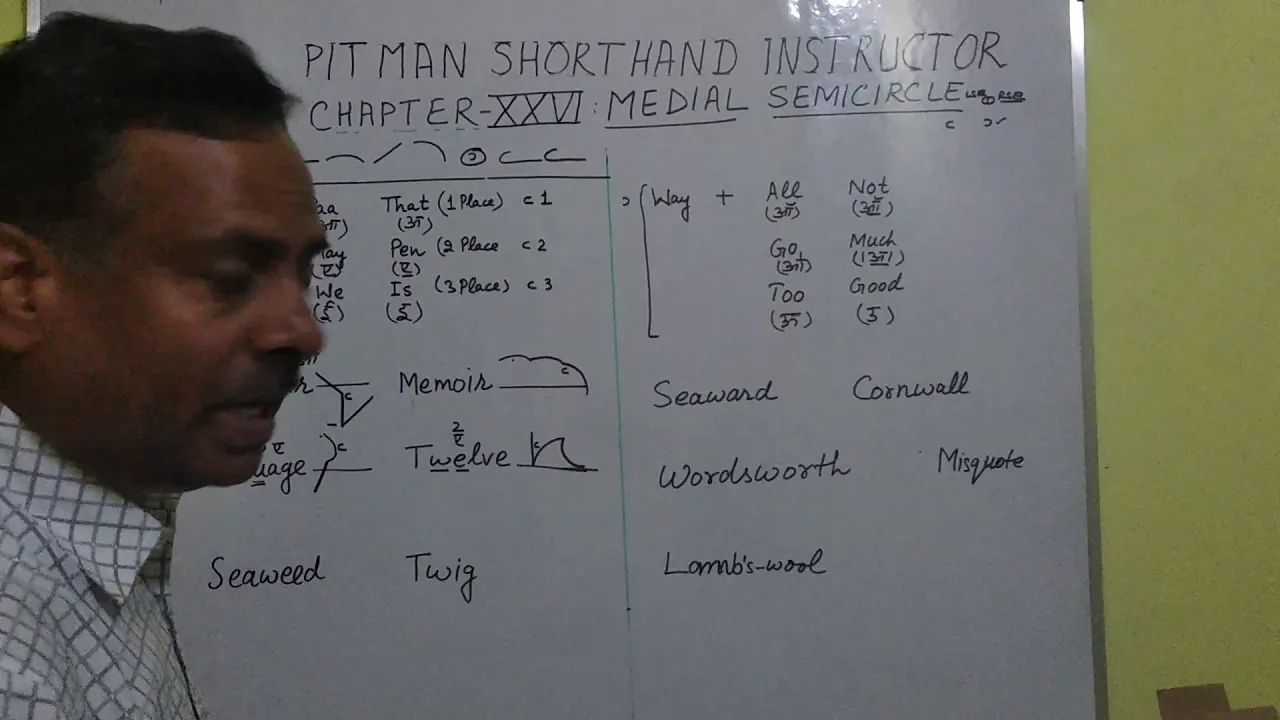 PITMAN SHORTHAND INSTRUCTOR
CHAPTER-XXVI: MEDIAL SEMICIRCLE
That (1 Place) c 1
(अ)
Pen (2 Place c 2
(ए) (ए)
We Is (3 Place) c 3
(ई) (ई)
Way + All Not
(ऑ) (ऑ)
Go Much
(ओ) (अ)
Too Good
(ऊ) (उ)
Memoir
uage Twelve
2
ए
Seaweed Twig
Seaward Cornwall
Wordsworth Misquote
Lamb's-wool